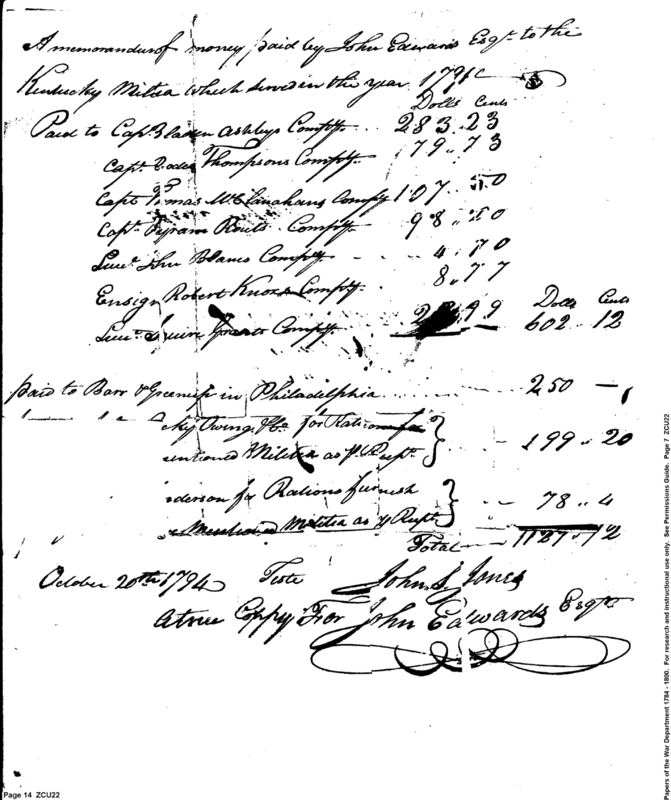 A memorandum of money paid by John Edwards Esqr. to the
Kentucky Militia which served in the year 1791
Dolls Cents
Paid to Capt. Bladen Ashbys Compy. .. 283..23
Capt. Thompsons Compy. 79..73
Capt. Thomas McClanahans Compy 107..50
Capt. Routs Compy. 98..50
Lieut. John Blanes Compy. 4..70
Ensign Robert Knoxs Compy. 8..77
Dolls Cents
Lieut. Squire Grants Compy. 99 602..12
paid to Barr & Greenup in Philadelphia 250 —
" " Owing & Co for Rations
mentioned Militia as pr. Rect. } 199..20
derson for Rations furnish
Mentioned Militia as pr Rect } 78..4
Total — 1127..12
October 20th 1794 Teste John S. Jones
A true Coppy For John Edwards Esqr.
Page 14 ZCU22
Papers of the War Department 1784 - 1800. For research and instructional use only. See Permissions Guide. Page 7 ZCU22